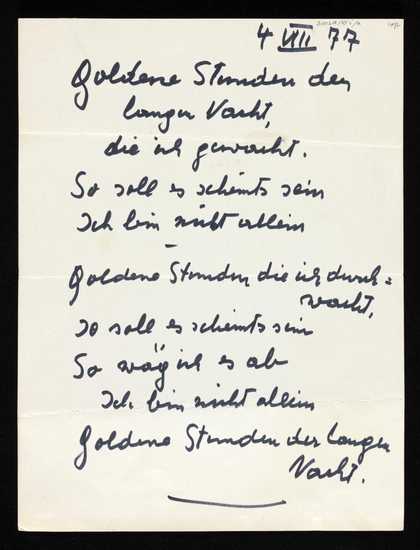 4 VIII 77
Goldene Stunden der
langen Nacht,
die ich gewacht.
So soll es scheints sein
Ich bin nicht allein
–
Goldene Stunden die ich durch=
wacht,
so soll es scheints sein
So wäg ich es ab
Ich bin nicht allein
Goldene Stunden der langen
Nacht.